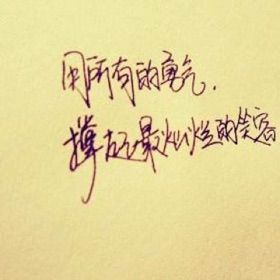 用所有的勇气,
撑起最灿烂的笑容